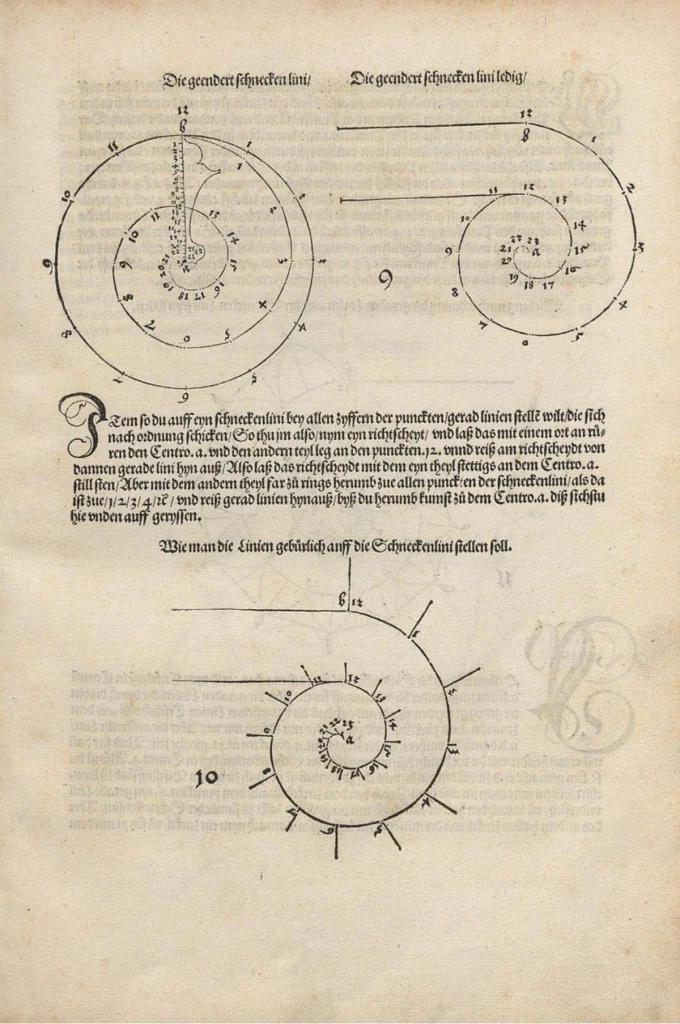 Die geendert schnecken lini/
Die geendert schnecken lini ledig/
12
b
11
1
1
10
2
2
11
13
10
14
9
9
15
3
3
16
8
8
19
18
17
x
4
7
5
6
7
5
6
12
b
1
11
12
13
2
10
14
22
23
a
3
9
21
15
20
16
9
8
19
18
17
4
7
6
5
ITem so du auff eyn schneckenlini bey allen zyffern der punckten/gerad linien stellē wilt/die sich
nach ordnung schicken/So thu jm also/nym eyn richtscheyt/ vnd laß das mit einem ort an rü-
ren den Centro.a. vnd den andern teyl leg an den punckten.12. vnnd reiß am richtscheydt von
dannen gerade lini hyn auß/Also laß das richtscheydt mit dem eyn theyl stettigs an dem Centro.a.
still sten/Aber mit dem andern theyl far zů rings herumb zue allen puncktē der schneckenlini/als da
ist zue/1/2/3/4/rē/ vnd reiß gerad linien hynauß/byß du herumb kumst zů dem Centro.a. diß sichstu
hie vnden auff geryssen.
Wie man die Linien gebürlich auff die Schneckenlini stellen soll.
b
12
1
11
12
13
2
10
14
22
23
a
9
21
15
3
20
16
10
8
19
18
17
4
7
6
5